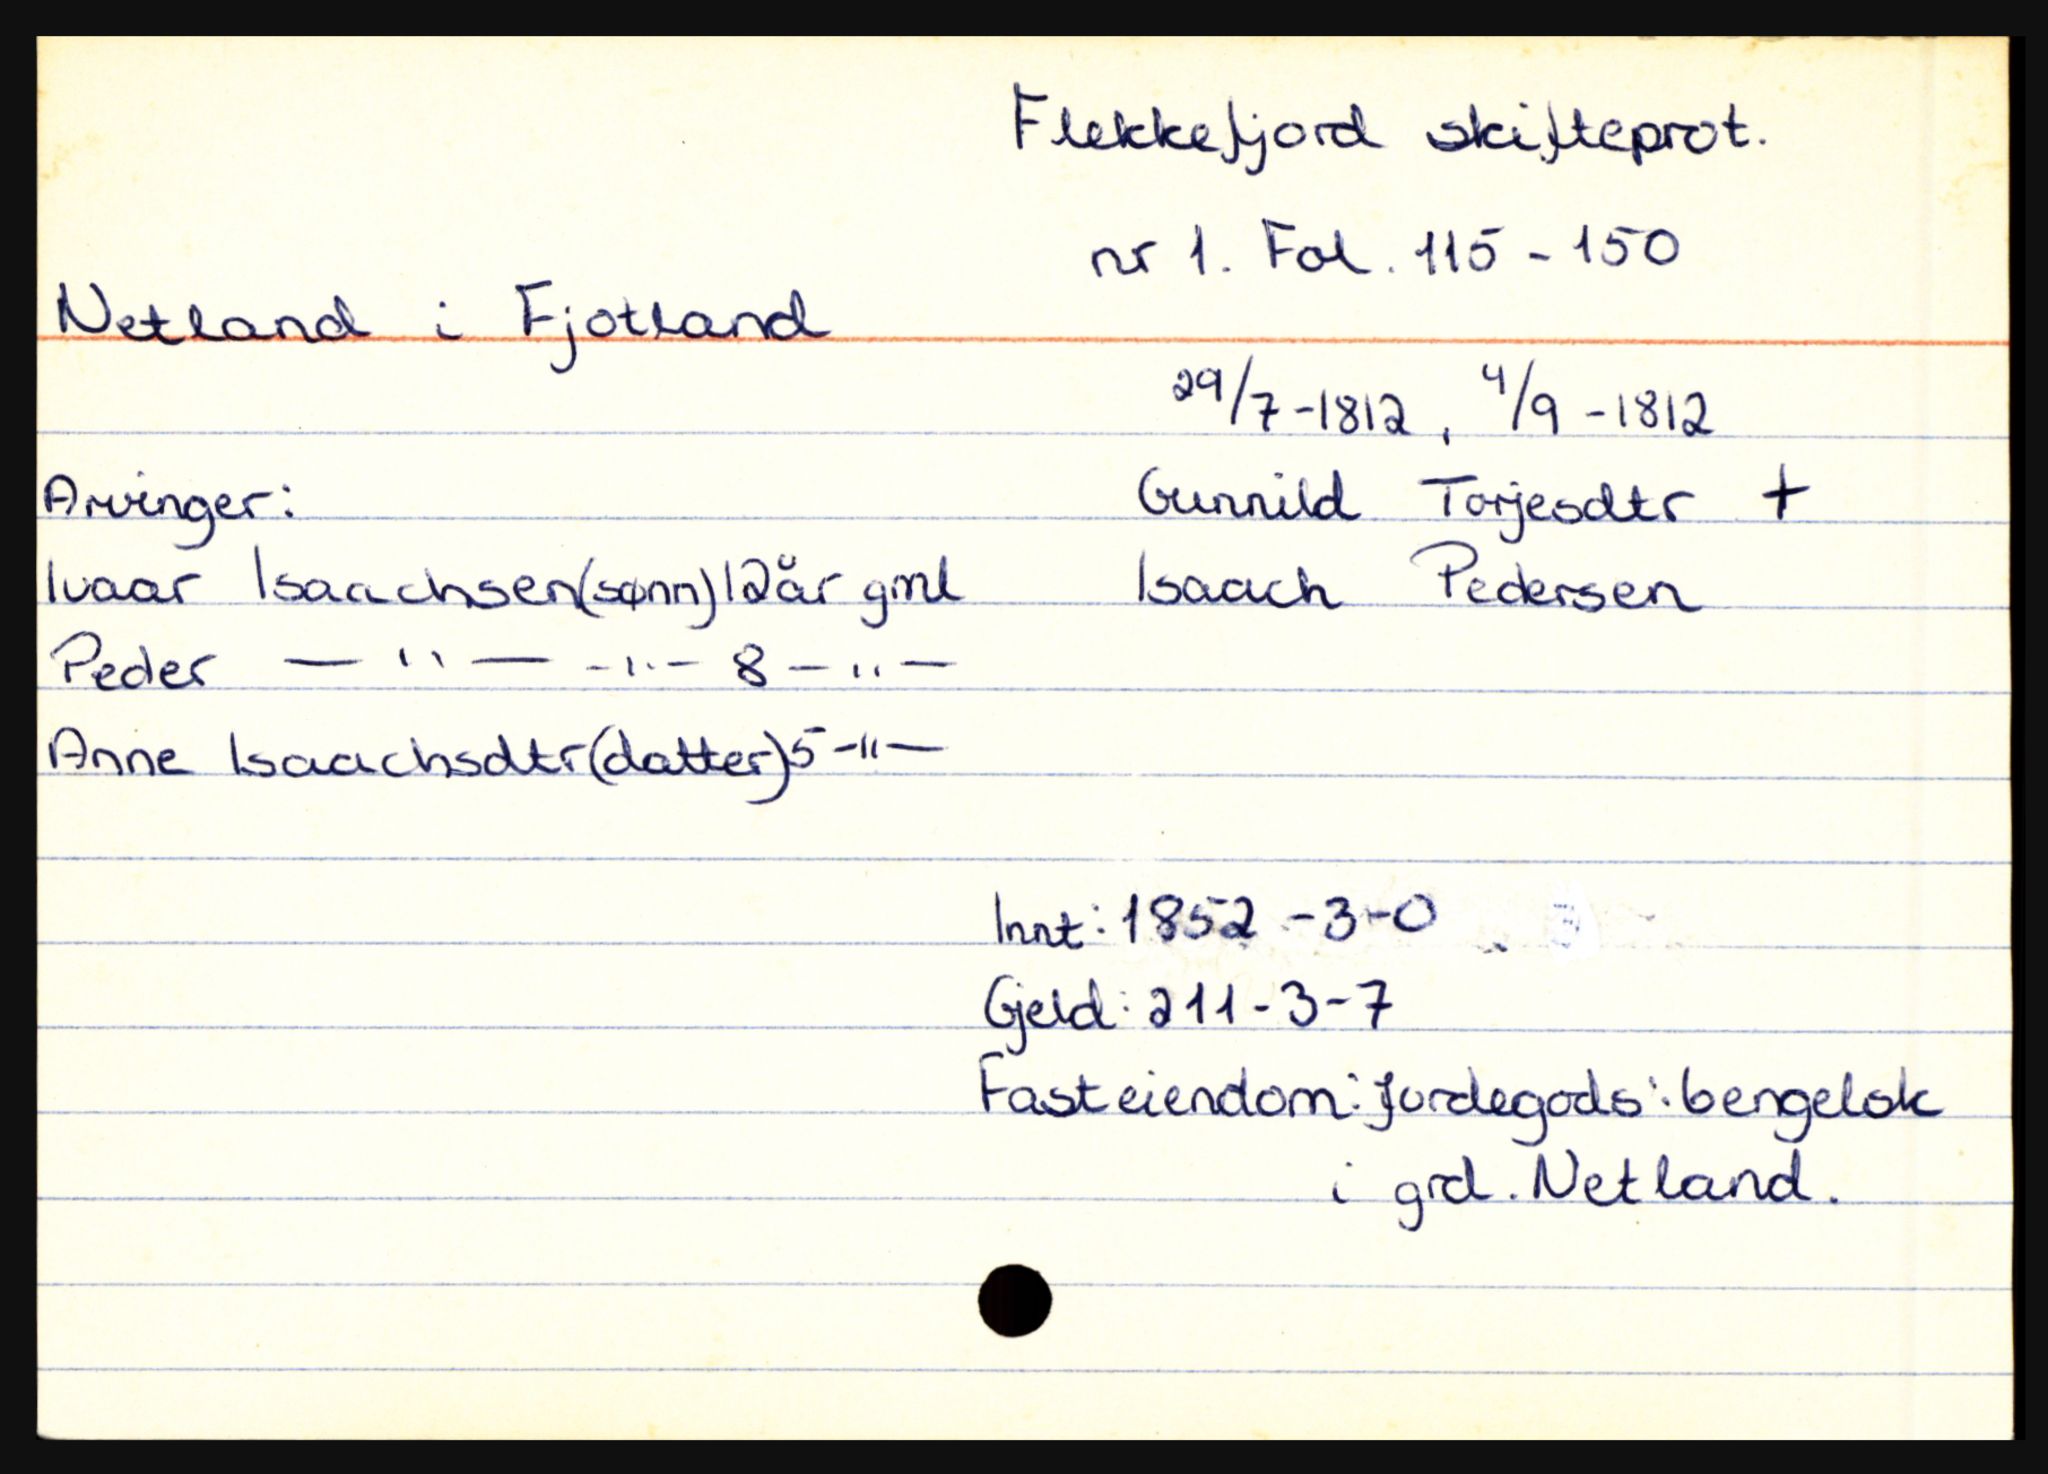 Flekkefjord skifteprot.
nr 1. Fol. 115 - 150
Netland i Fjotland
29/7-1812, 4/9-1812
Arvinger:
Gunnild Torjesdtr +
Ivaar Isaachsen (sønn) 12 år gml
Isaach Pedersen
Peder — " — - " - 8 - " —
Anne Isaachsdtr (datter) 5 - " —
Innt: 1852 - 3 - 0
Gjeld: 211 - 3 - 7
Fast eiendom: Jordegods: bengelsk
i grd. Netland.